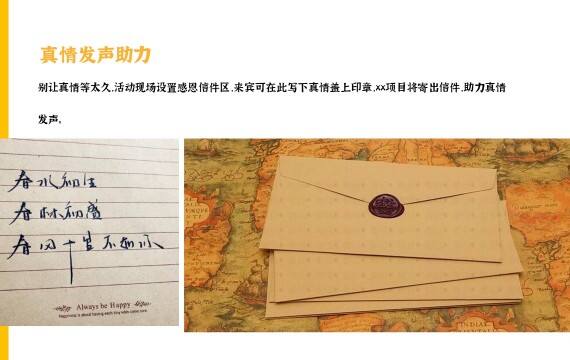 真情发声助力
别让真情等太久.活动现场设置感恩信件区.来宾可在此写下真情盖上印章.xx项目将寄出信件.助力真情
发声.
春水初生
春林初盛
春风十里不如你
Always be Happy
Happiness is about having each tiny wish come true.
INDIAE